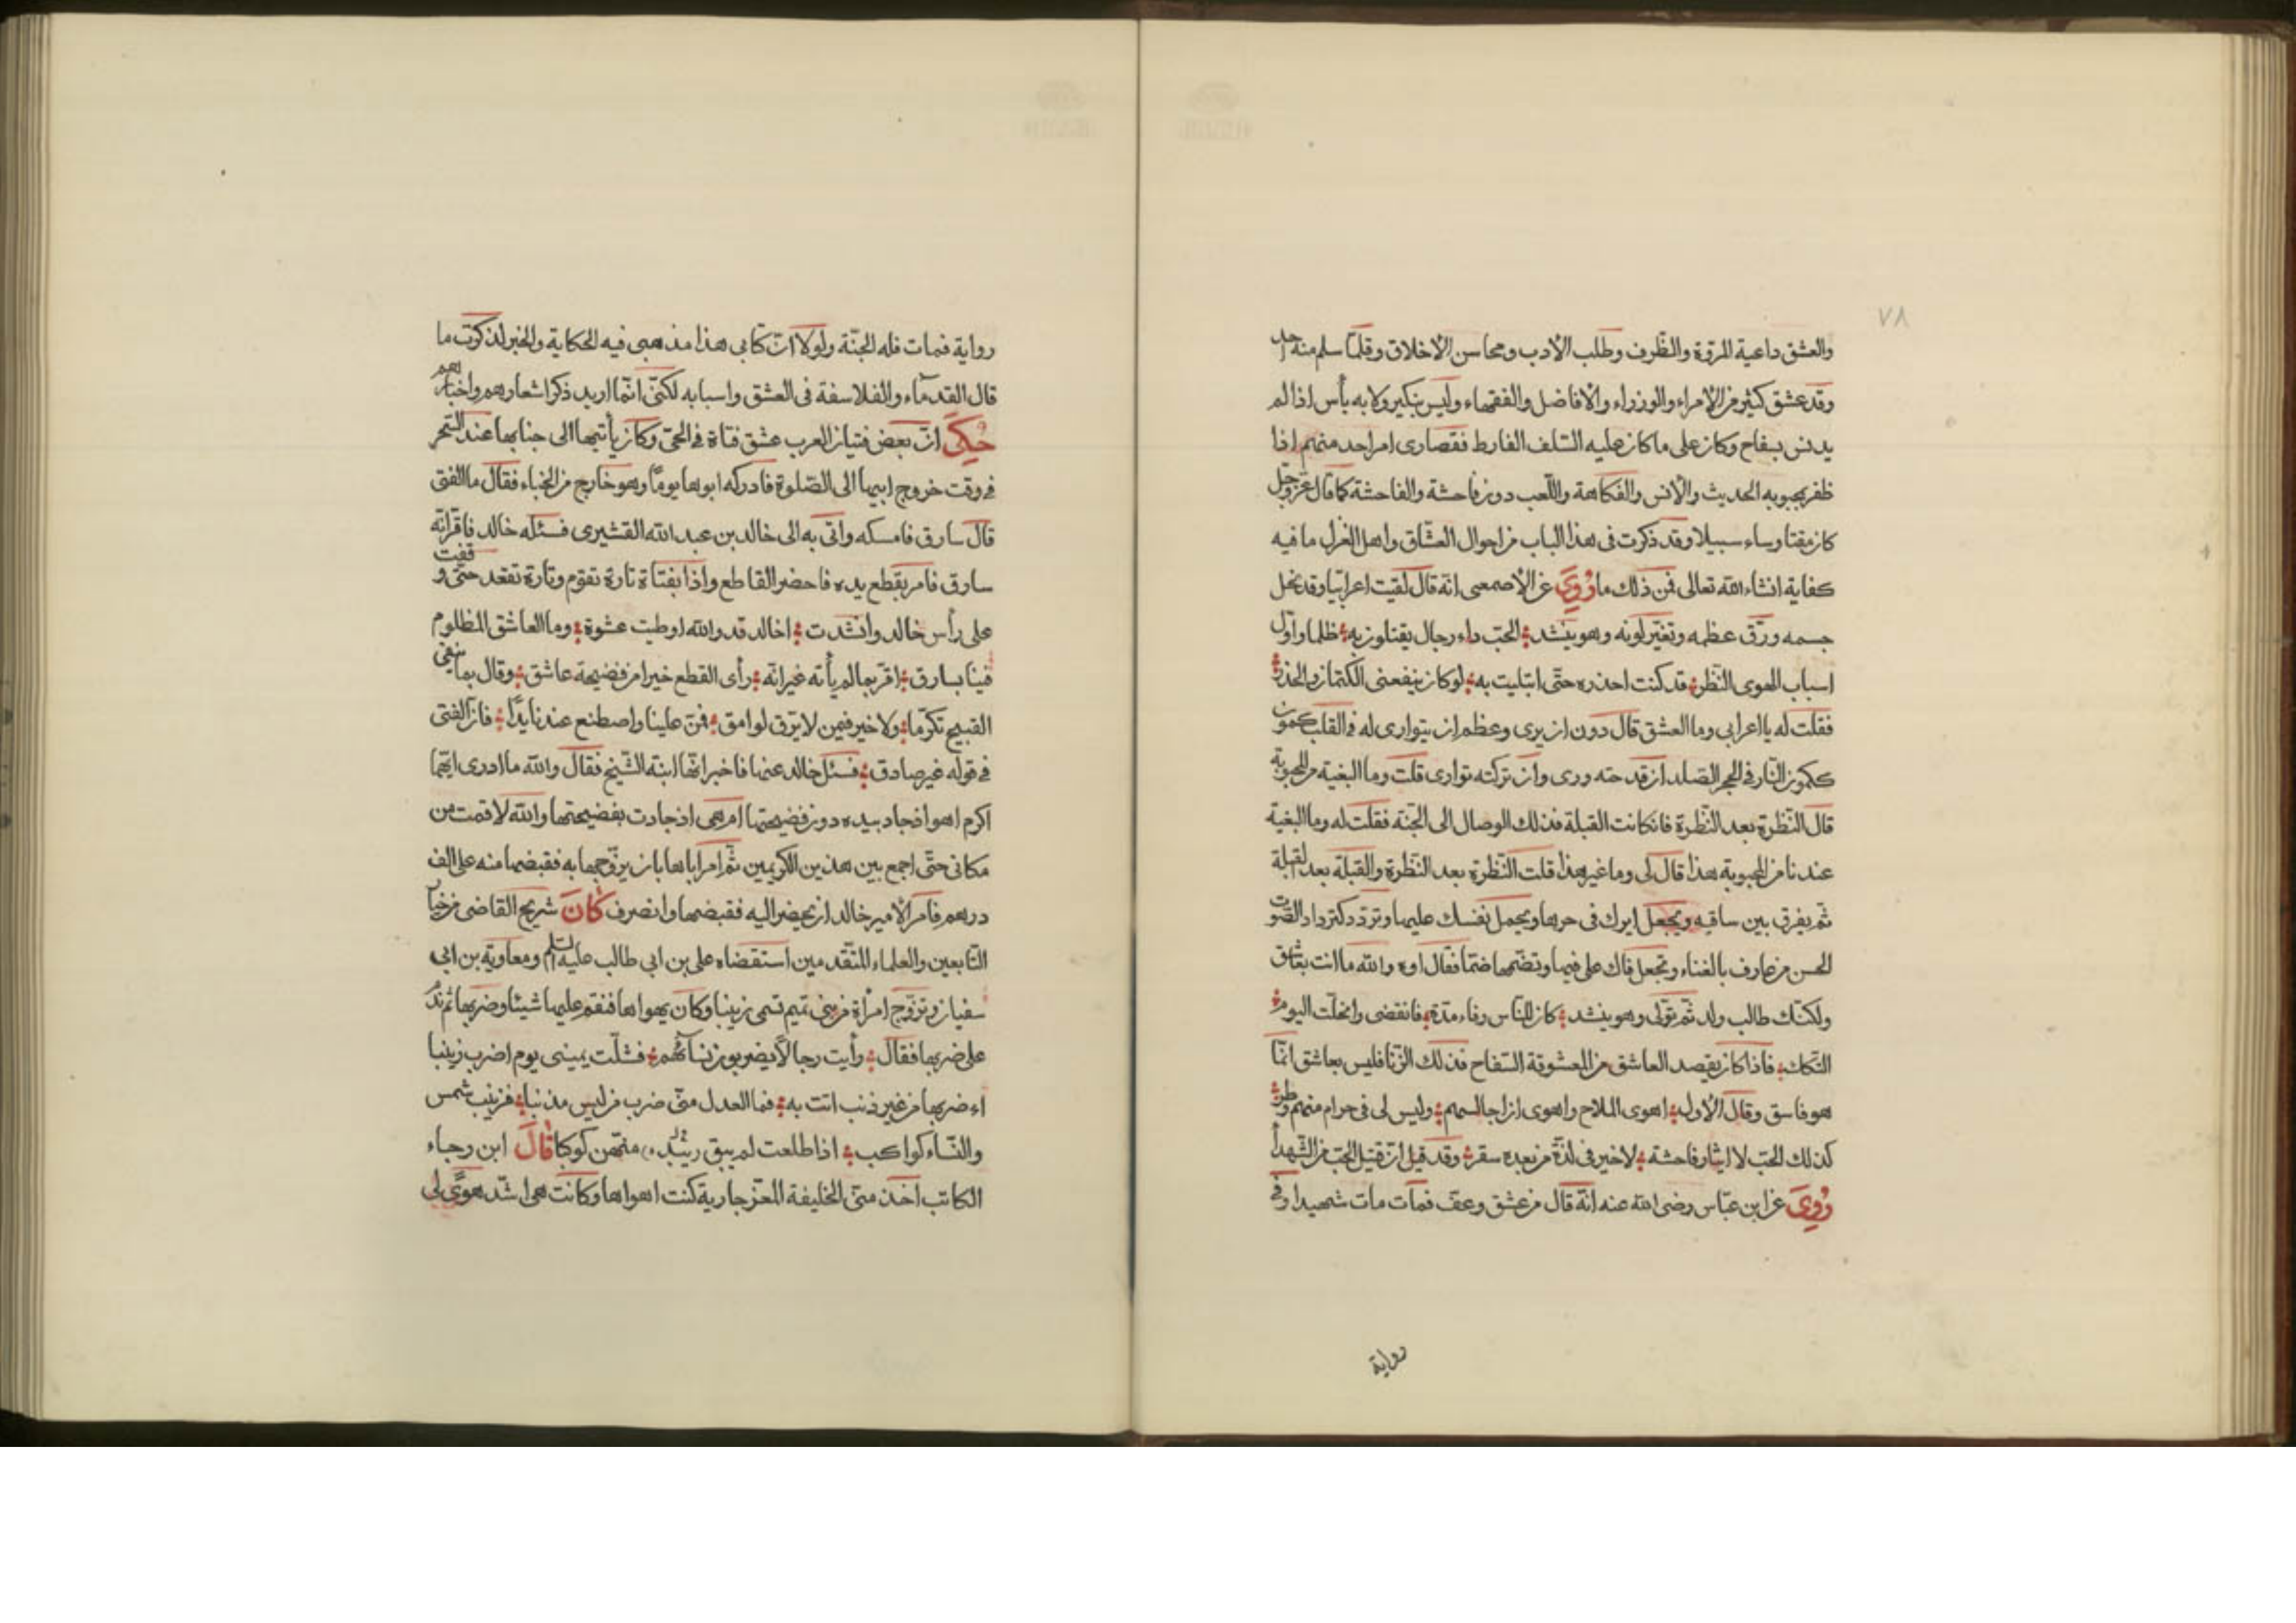 ٧٨
والعشق داعية المروة والظرف وطلب الادب ومحاسن الاخلاق وقلما سلم منه احد
وقد عشق كثير من الامراء والوزراء والافاضل والفقهاء وليس بنكير ولا به بأس اذا لم
يدنس بسفاح وكان على ما كان عليه السلف الفارط فقصارى امر احد منهم اذا
ظفر بمحبوبه الحديث والانس والفكاهة واللعب دون فاحشة والفاحشة كما قال عز وجل
كان مقتا وساء سبيلا وقد ذكرت فى هذا الباب من احوال العشاق واهل الغزل ما فيه
كفاية انشاء الله تعالى فمن ذلك ما رُوِىَ عن الاصمعى انه قال لقيت اعرابيا وقد نحل
جسمه ورق عظمه وتغير لونه وهو ينشد الحب داء رجال يقتلون به ظلما واول
اسباب الهوى النظر قد كنت احذره حتى ابتليت به لو كان ينفعنى الكتمان والحذر
فقلت له يا اعرابى وما العشق قال دون ان يرى وعظم ان يتوارى له فى القلب كمون
ككمون النار فى الحجر الصلد ان قدحته ورى وان تركته توارى قلت وما البغية من المحبوبة
قال النظرة بعد النظرة فان كانت القبلة فذلك الوصال الى الجنة فقلت له وما البغية
عندنا من المحبوبة هذا قال لى وما غير هذا قلت النظرة بعد النظرة والقبلة بعد القبلة
ثم يفرق بين ساقيه ويجعل ايرك فى حرها ويحمل نفسك عليها وتردد كترداد الصوت
الحسن من عارف بالغناء وتجعل فاك على فيها وتضمها ضما فقال اوه والله ما انت بعاشق
ولكنك طالب ولد ثم تولى وهو ينشد كان للناس وفاء مدة فانقضى وانحلت اليوم
التكك فاذا كان يقصد العاشق من المعشوقة السفاح فذلك الزنا فليس بعاشق انما
هو فاسق وقال الاول اهوى الملاح واهوى ان اجالسهم وليس لى فى حرام منهم وطر
كذلك الحب لا ايثار فاحشة لا خير فى لذة من بعده سقر وقد قيل ان قتيل الحب من الشهدا
رُوِىَ عن ابن عباس رضى الله عنه انه قال من عشق وعف فمات مات شهيدا وفى
رواية
رواية فمات فله الجنة ولولا ان كتابى هذا مذهبى فيه الحكاية والخبر لذكرت ما
قال القدماء والفلاسفة فى العشق واسبابه لكنى انما اريد ذكر اشعارهم واخبارهم
حُكِىَ ان بعض فتيان العرب عشق فتاة فى الحى وكان يأتيها الى جنابها عند السحر
فى وقت خروج ابيها الى الصلوة فادركه ابوها يوما وهو خارج من الخباء فقال ما الفتى
قال سارق فامسكه واتى به الى خالد بن عبد الله القشيرى فسئله خالد فاقر انه
سارق فامر بقطع يده فاحضر القاطع واذا بفتاة تارة تقوم وتارة تقعد حتى وقفت
على رأس خالد وانشدت اخالد قد والله اوطيت عشوة وما العاشق المظلوم
فينا بسارق اقر بما لم يأته غير انه رأى القطع خيرا من فضيحة عاشق وقال بما ينفى
القبيح تكرما ولا خير فيمن لا يرق لوامق فمن علينا واصطنع عندنا يدا فان الفتى
فى قوله غير صادق فسئل خالد عنها فاخبر انها ابنة الشيخ فقال والله ما ادرى ايهما
اكرم اهو اذ جاد بيده دون فضيحتها ام هى اذ جادت بفضيحتها والله لا قمت من
مكانى حتى اجمع بين هذين الكريمين ثم امر اباها بان يزوجها به فقبضها منه على الف
درهم فامر الامير خالد ان يحضر اليه فقبضها وانصرف كَانَ شريح القاضى من خيار
التابعين والعلماء المتقدمين استقضاه على بن ابى طالب عليه السلم ومعاوية بن ابى
سفيان وتزوج امرأة من بنى تميم تسمى زينبا وكان يهواها فنقم عليها شيئا وضربها ثم ندم
على ضربها فقال رأيت رجالا يضربون نساءهم فشلت يمينى يوم اضرب زينبا
اءضربها من غير ذنب اتت به فما العدل منى ضرب من ليس مذنبا فزينب شمس
والنساء كواكب اذا طلعت لم يبق منهن كوكبا قَالَ ابن رجاء
الكاتب اخذ منى الخليفة المعز جارية كنت اهواها وكانت هى اشد هوًى لى